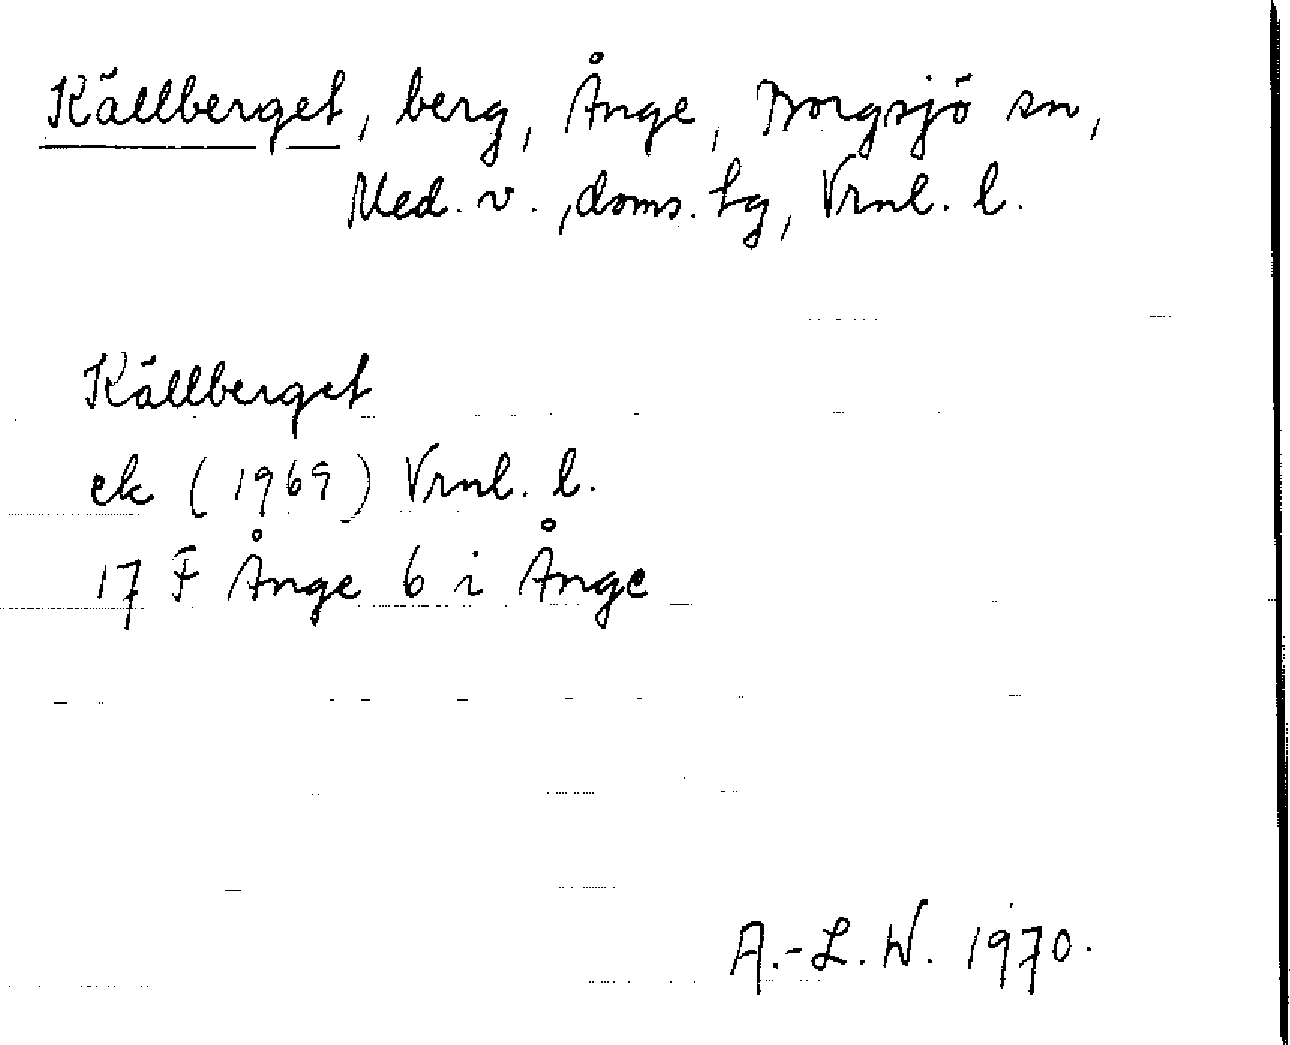 Källberget, berg, Ånge, Borgsjö sn,
Med. v. doms. tg, Vrnl. l.
Källberget
ek (1969) Vrnl. l.
17 F Ånge 6 i Ånge
A.-L. W. 1970.